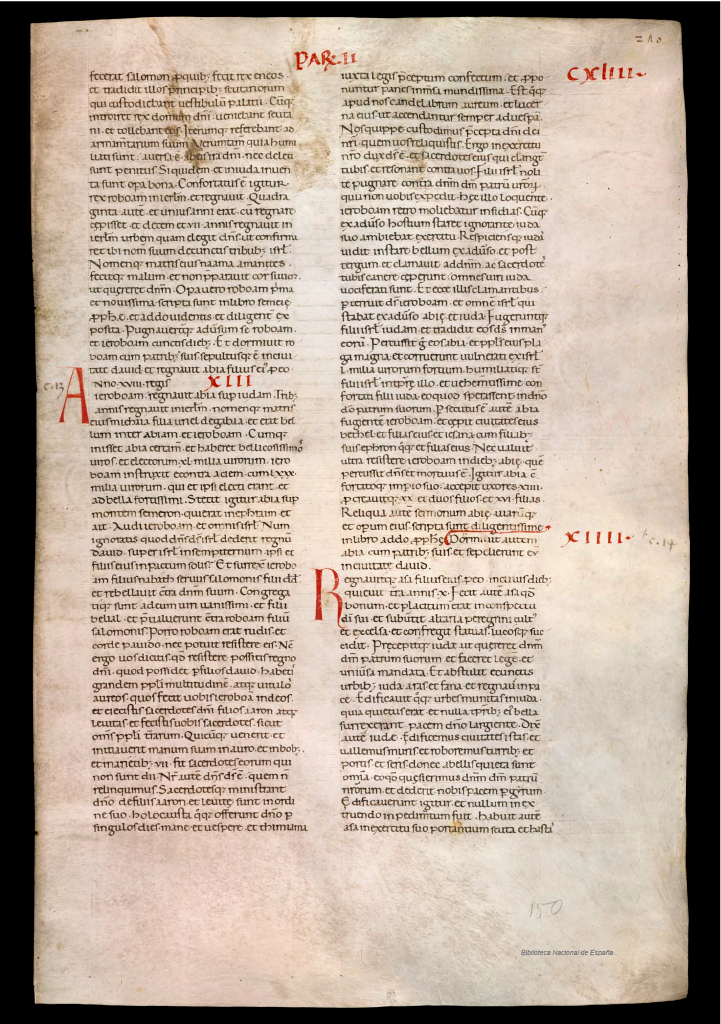 PAR II
CXLIII
fecerat salomon ꝓquibꝫ fecit rex eneos
et tradidit illos principibꝫ scutariorum
qui custodiebant uestibulū palatii. Cūq;
introiret rex domum dnī. ueniebant scuta
rii. et tollebant eos. Iterumq; referebant ad
armamtarium suum. Verumtam quia humi
liati sunt. auersa ē ab eis ira dnī. nec deleti
sunt penitus. Siquidem et iniuda inuen
ta sunt opa bona. Confortatus ē igitur
rex roboam inierlm̄. et regnauit. Quadra
ginta autē. et unius anni erat cū regnare
cepisset. et decem et vii. annis regnauit in
ierlm̄ urbem quam elegit dn̄s. ut confirma
ret ibi nom̄ suum decunctis tribubꝫ isrl̄.
Nomenq; matris eius naama amanites.
fecitq; malum. et non ꝑparauit cor suum.
ut quereret dn̄m. Opa uero roboam prima
et nouissima scripta sunt inlibro semeię
ꝓpħ.ę. et addo uidentis. et diligent̄ ex
posita. Pugnauerūtq; aduersum se roboam.
et ieroboam cunctis diebꝫ. Et dormiuit ro
boam cum patribꝫ suis sepultusq; ē inciui
tate dauid. et regnauit abia filius eī ꝑeo.
c. 13
Anno xviii. regis
XIII
ieroboam. regnauit abia sup iudam. Tribꝫ
annis regnauit inierlm̄. nomenq; matris
eius michaia filia uriel degabia. et erat bel
lum inter abiam et ieroboam. Cumq;
inisset abia certam̄. et haberet bellicosissimos
uiros. et electorum xl. milia uirorum. iero
boam instruxit econtra aciem. cum lxxx.
milia uirorum. qui et ipsi electi erant. et
ad bella fortissimi. Stetit igitur abia sup
montem semeron. qui erat inephraim. et
ait. Audi ieroboam. et omnis isrl̄. Num
ignoratis quod dn̄s dī isrl̄. dederit regnū
dauid. super isrl̄ insempiternum. ipsi et
filiis eius in pactum salis. Et surrex̄ ierobo
am filius nabath seruus salomonis filii dd̄.
et rebellauit ct̄ra dn̄m suum. Congrega
tiq; sunt adeum uiri uanissimi. et filii
belial. et p̄ualuerunt ct̄ra roboam filiū
salomonis. Porro roboam erat rudis. et
corde pauido. nec potuit resistere eis. Nc̄
ergo uos dicitis qđ resistere possitis regno
dnī. quod possidet ꝑfilios dauid. habetis
grandem ppl̄i multitudinē. atq; uitulos
aureos quos fecit uobis ieroboā indeos.
et eiecistis sacerdotes dnī. filios aaron. atq;
leuitas. et fecistis uobis sacerdotes. sicut
om̄s ppl̄i t̄rarum. Quicūq; uenerit. et
initiauerit manum suam intauro. et inbobꝫ.
et inarietibꝫ. vii. fit sacerdotes eorum qui
non sunt dii. Nr̄ autē dn̄s ds̄ ē. quem n̄
relinquimus. Sacerdotesq; ministrant
dnō defiliis aaron. et leuitę sunt in ordi
ne suo. holocausta q̄q; offerunt dnō ꝑ
singulos dies. mane et uespere. et thimiama
iuxta legis p̄ceptum confectum. et ꝓpo
nuntur panes inmsa mundissima. Est q̄q;
apud nos candelabrum aureum. et lucer
na eius ut accendantur semper aduesꝑam.
Nos quippe custodimus p̄cepta dnī dei
nrī. quem uos reliquistis. Ergo inexercitu
nrō dux ds̄ ē. et sacerdotes eius qui clangt̄
tubis. et resonant contra uos. Filii isrl̄ noli
te pugnare contra dn̄m dm̄ patrū urōꝝ.
quia non uobis expedit. hęc illo loquente.
ieroboam retro moliebatur insidias. Cūq;
exaduso hostium staret. ignorante iuda
suo ambiebat exercitu. Respiciensq; iuda
uidit instare bellum exaduso. et post
tergum. et clamauit addn̄m. ac sacerdotes
tubis canere cęperunt. omnesq; uiri iuda
uociferati sunt. Et ecce illis clamantibus
ꝑterruit ds̄ ieroboam. et omnē isrl̄ qui
stabat exaduso abię. et iuda. Fugeruntq;
filii isrl̄ iudam. et tradidit eos ds̄ inmanu
eorū. Percussit ḡ eos abia. et ppl̄s eius pla
ga magna. et corruerunt uulnerati exisrl̄.
l. milia uirorum fortium. humiliatiq; sī
filii isrl̄ intp̄re illo. et uehementissime con
fortati filii iuda. eoquod sperassent indnō
dō patrum suorum. Persecutus ē autē abia
fugientē ieroboam. et cępit ciuitates eius
bethel et filias eius. et iesana cum filiabꝫ
suis. ephron q̄q; et filias eius. Nec ualuit
ultra resistere ieroboam indiebꝫ abię. quē
percussit dn̄s. et mortuus ē. Igitur abia c̄
fortatoq; impio suo. accepit uxores xiiii.
ꝓcreauitq; xx. et duos filios. et xvi. filias.
Reliqua autē sermonum abię. uiarūq;
et opum eius scripta sunt diligentissime
inlibro addo. ꝓpħę. Dormiuit autem
XIIII
c. 14
abia cum patribꝫ suis. et sepelierunt eū
inciuitate dauid.
Regnauitq; asa filius eius. ꝑeo. incuius diebꝫ
quieuit t̄ra annis. x. Fecit autē asa qđ
bonum. et placitum erat inconspectu
dī sui. et subūtit altaria peregrini cult᷒
et excelsa. et confregit statuas. lucosq; suc
cidit. Pręcepitq; iudę ut quereret dn̄m
dm̄ patrum suorum. et faceret legē. et
uniūsa mandata. Et abstulit ecunctis
urbibꝫ iuda aras et fana. et regnau in pa
ce. Ędificauit q̄q; urbes munitas iniuda.
quia quietus erat. et nulla tp̄ribꝫ eī bella
surrexerant. pacem dnō largiente. Dix̄
autē iudę. Edificemus ciuitates istas. et
uallemus muris. et roboremus turribꝫ. et
portis. et seris. donec abellis quieta sunt
omīa. eoqđ quesierimus dn̄m dm̄ patrū
nrōrum. et dederit nobis pacem ꝑgyrum.
Ędificauerunt igitur. et nullum inex
truendo inpedimtum fuit. habuit autē
asa inexercitu suo portantium scuta et hastas
150
Biblioteca Nacional de España